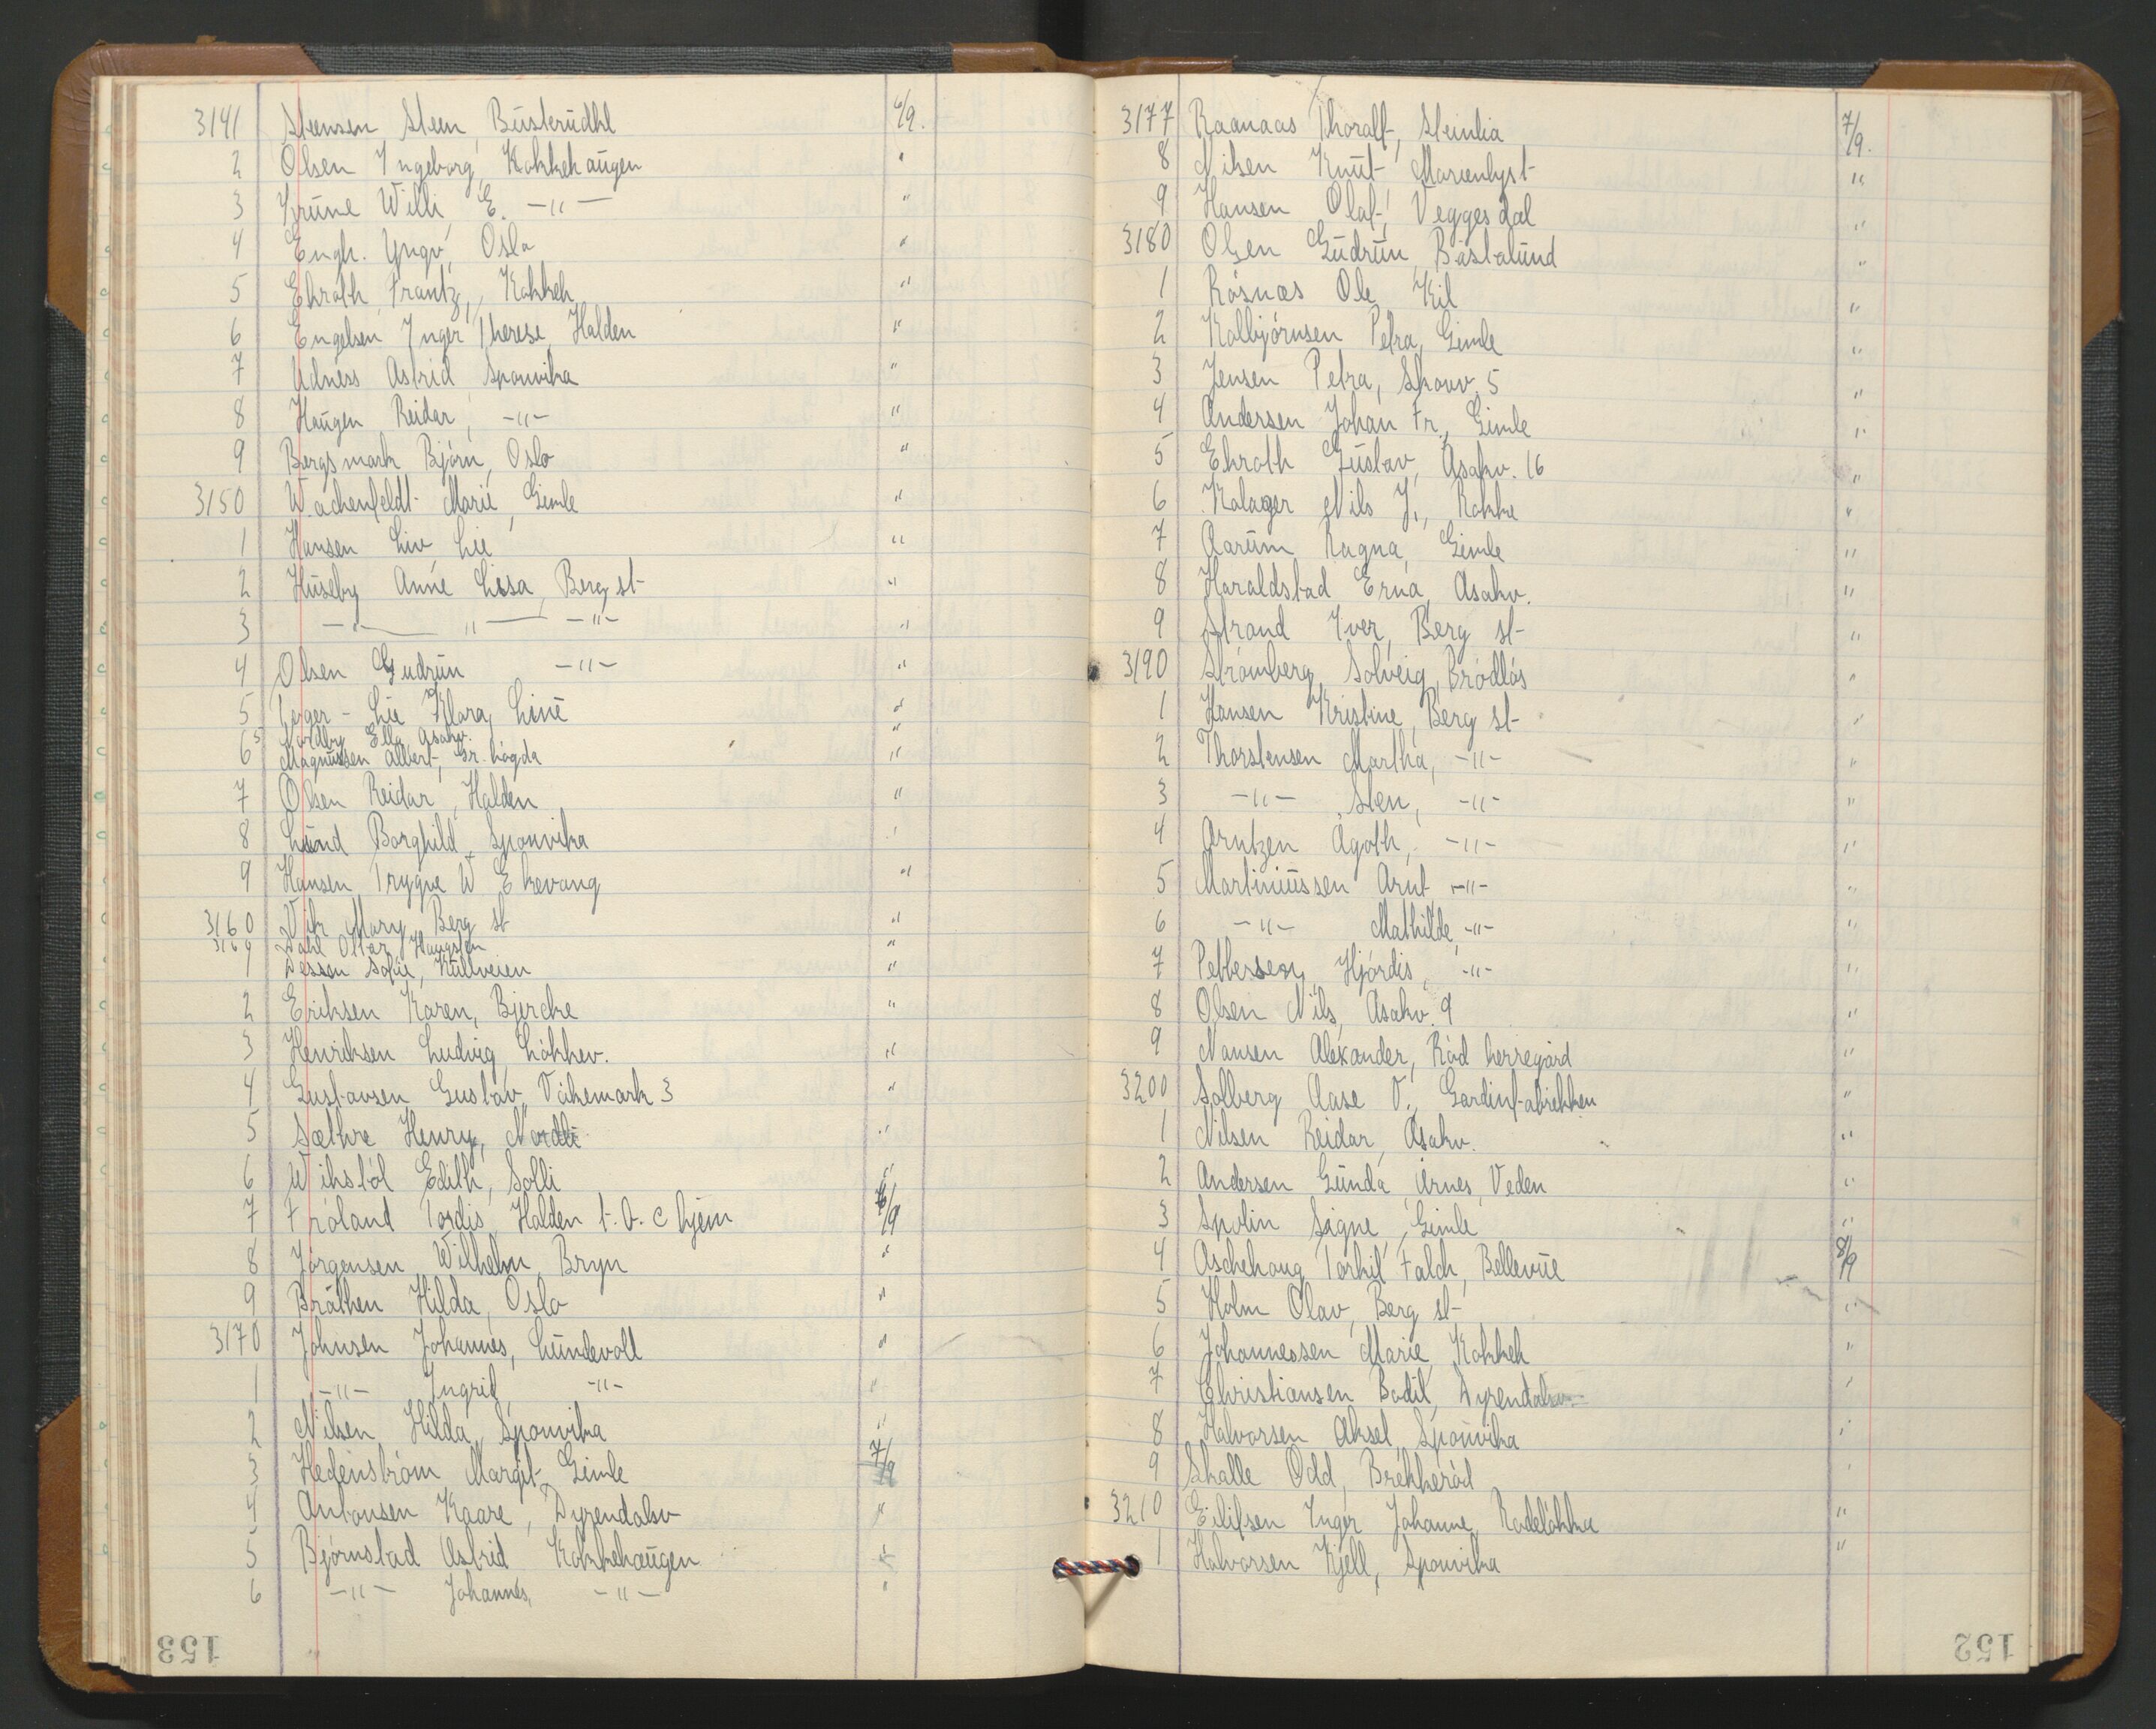 3141 Steensen Steen Busterudkl 6/9.
2 Olsen Ingeborg, Kokkehaugen "
3 Grüne Willi, E. -"- "
4 Engh. Yngv, Oslo "
5 Ehroth Frantz, Kokkeh "
6 Engelsen Inger Therese, Halden "
7 Udness Astrid Sponvika "
8 Haugen Reidar, -"- "
9 Bergsmark Bjørn, Oslo "
3150 Wachenfeldt Marie, Gimle "
1 Hansen Liv Lie "
2 Huseby Anne Lissa, Berg st "
3 -"- " -"- "
4 Olsen Gudrun -"- "
5 Lie Klara, Line "
5 Nordby Ella, Asakv. "
6 Magnussen Albert, Gr. høgda "
7 Olsen Reidar, Halden "
8 Lund Borghild, Sponvika "
9 Hansen Trygve W Ekevang "
3160 Vik Mary, Berg st "
3169 Dahl Ottar, Haugsten "
1 Dessen Sofie, Kullveien "
2 Eriksen Karen, Bjercke "
3 Henriksen Ludvig, Løkkev. "
4 Gustavsen Gustav, Vakemark 3 "
5 Sæthre Henry, Nordli "
6 Wikstøl Edith, Solli "
7 Frøland Tordis, Halden t.b.c hjem 6/9
8 Jørgensen Wilhelm, Bryn "
9 Bråthen Hilda, Oslo "
3170 Johnsen Johannes, Lundevoll "
1 -"- Ingrid, -"- "
2 Nilsen Hilda, Sponvika "
3 Hedenstrøm Margit, Gimle 7/9
4 Antonsen Kaare, Dyrendalsv "
5 Bjørnstad Astrid Kokkehaugen "
6 -"- Johannes, -"- "
153
3177 Raanaas Thoralf, Steinlia 7/9.
8 Nilsen Knut, Marienlyst "
9 Hansen Olaf, Veggesdal "
3180 Olsen Gudrun, Båstalund "
1 Røsnæs Ole, Kil "
2 Kolbjørnsen Petra, Gimle "
3 Jensen Petra, Skouv. 5 "
4 Andersen Johan Fr., Gimle "
5 Ehroth Gustav, Asakv. 16 "
6 Kalager Nils J., Rokke "
7 Aarum Ragna, Gimle "
8 Haraldstad Erna, Asakv. "
9 Strand Iver, Berg st "
3190 Strømberg Solveig, Brødløs "
1 Hansen Kristine, Berg st "
2 Thorstensen Martha, -"- "
3 -"- Sten, -"- "
4 Arntzen Agoth, -"- "
5 Martiniussen Arnt -"- "
6 -"- Mathilde, -"- "
7 Pettersen, Hjørdis, -"- "
8 Olsen Nils, Asakv. 9 "
9 Nansen Alexander, Rød herregård "
3200 Solberg Aase V., Gardinfabrikken "
1 Nilsen Reidar, Asakv. "
2 Andersen Gunda, Årnes, Veden "
3 Spolin Signe, Gimle "
4 Aschehoug Torkil Falch, Bellevue 8/9
5 Holm Olav, Berg st "
6 Johannessen Marie, Kokkeh "
7 Christiansen Bodil, Dyrendalsv "
8 Halvorsen Aksel, Sponvika "
9 Skalle Odd, Brekkerød "
3210 Eilifsen Inger Johanne, Rødeløkka "
1 Halvorsen Kjell, Sponvika "
152